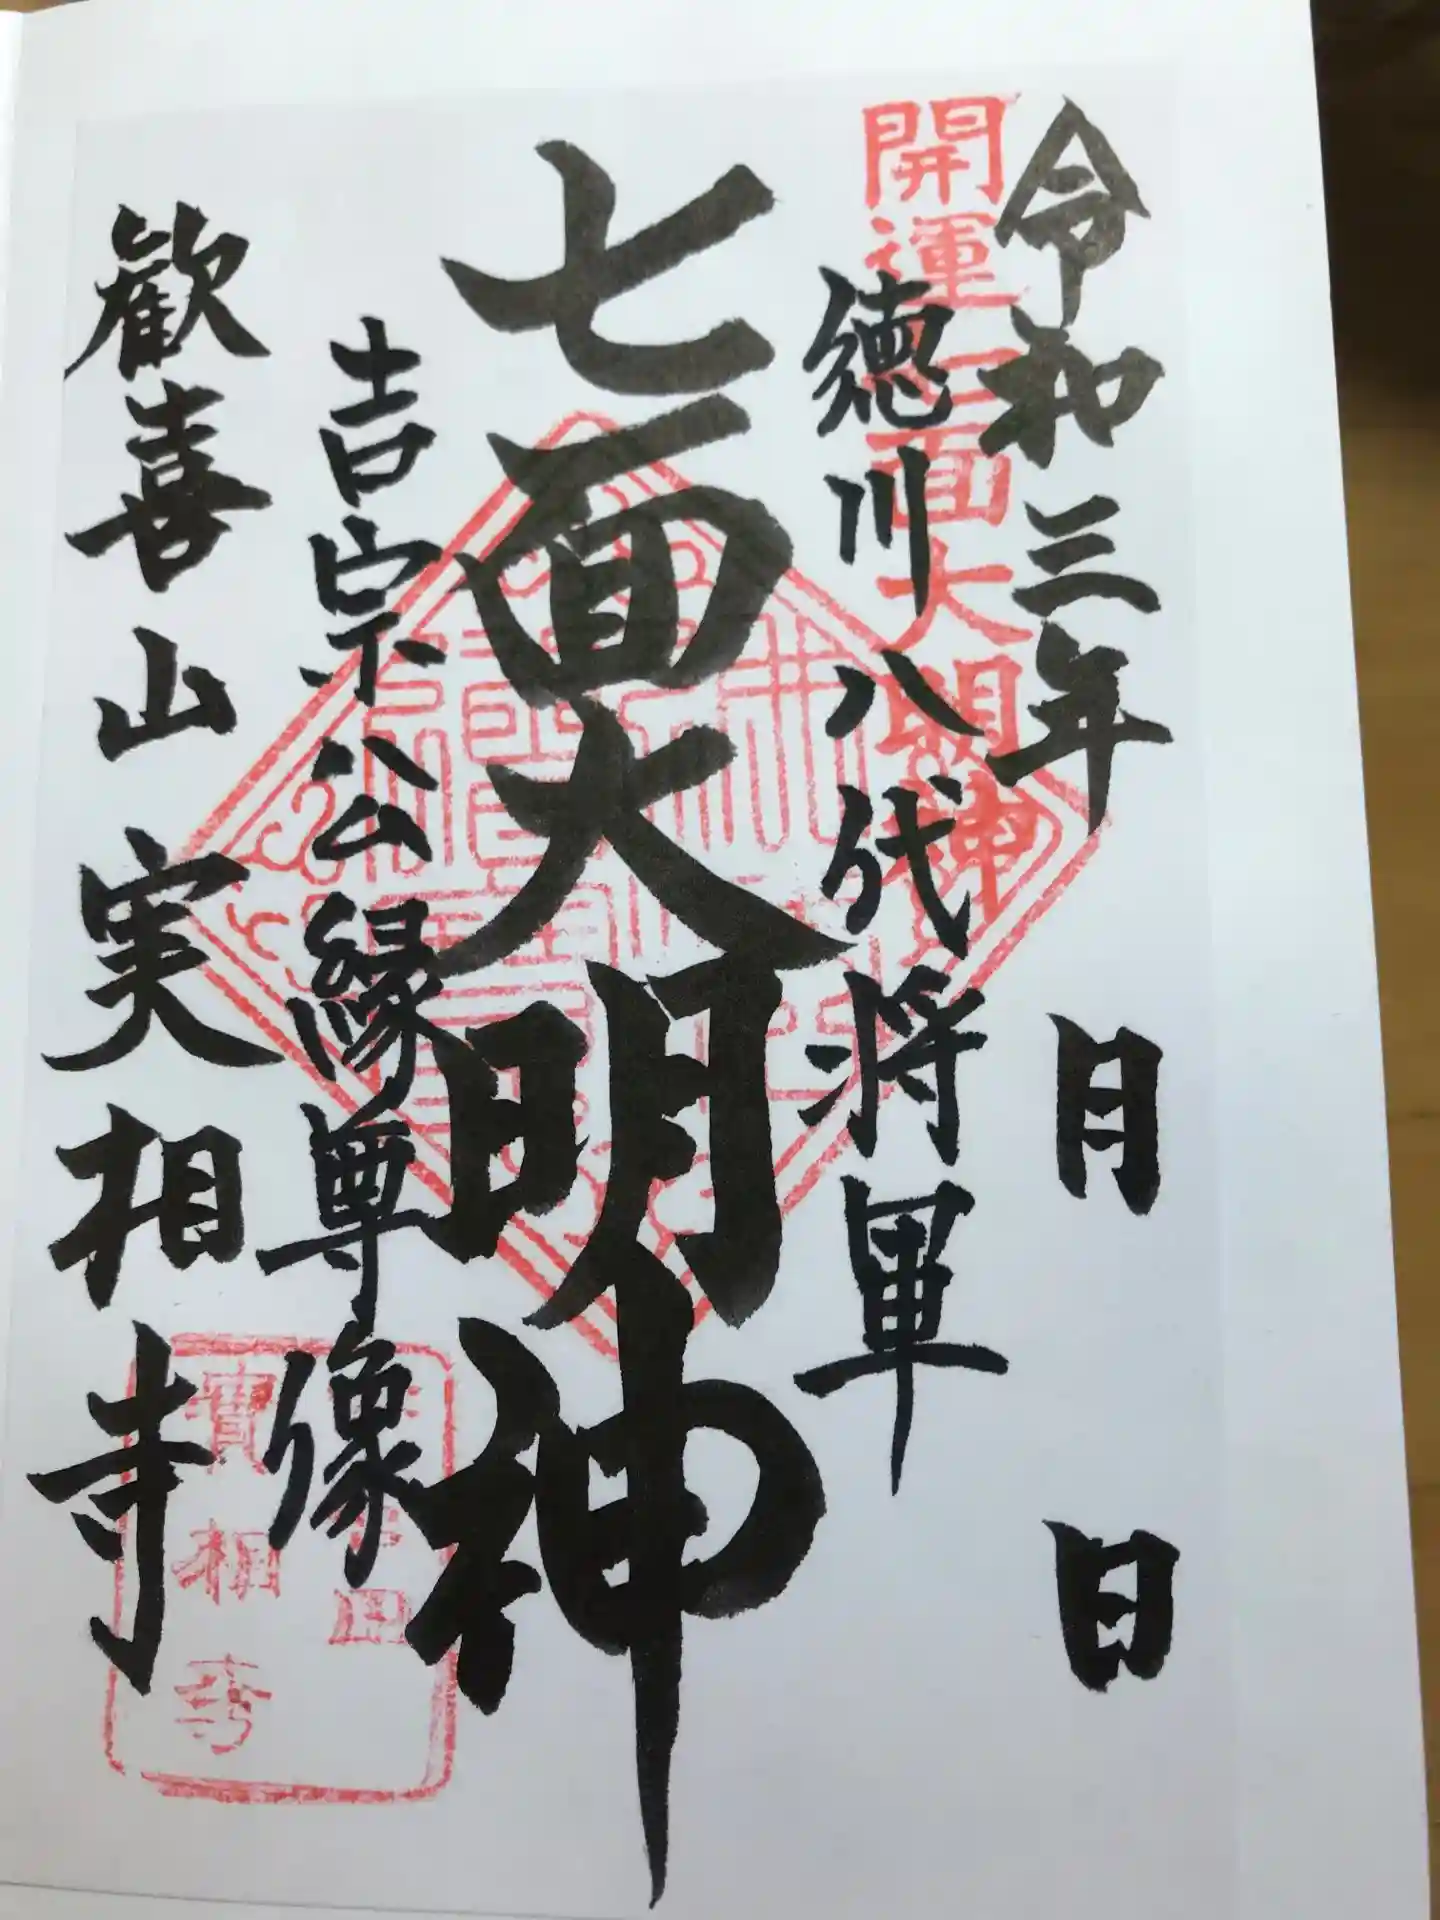 令和三年 月 日
開運七面大明神
徳川八代将軍
七面大明神
吉宗公縁尊像
歓喜山実相寺
實相寺